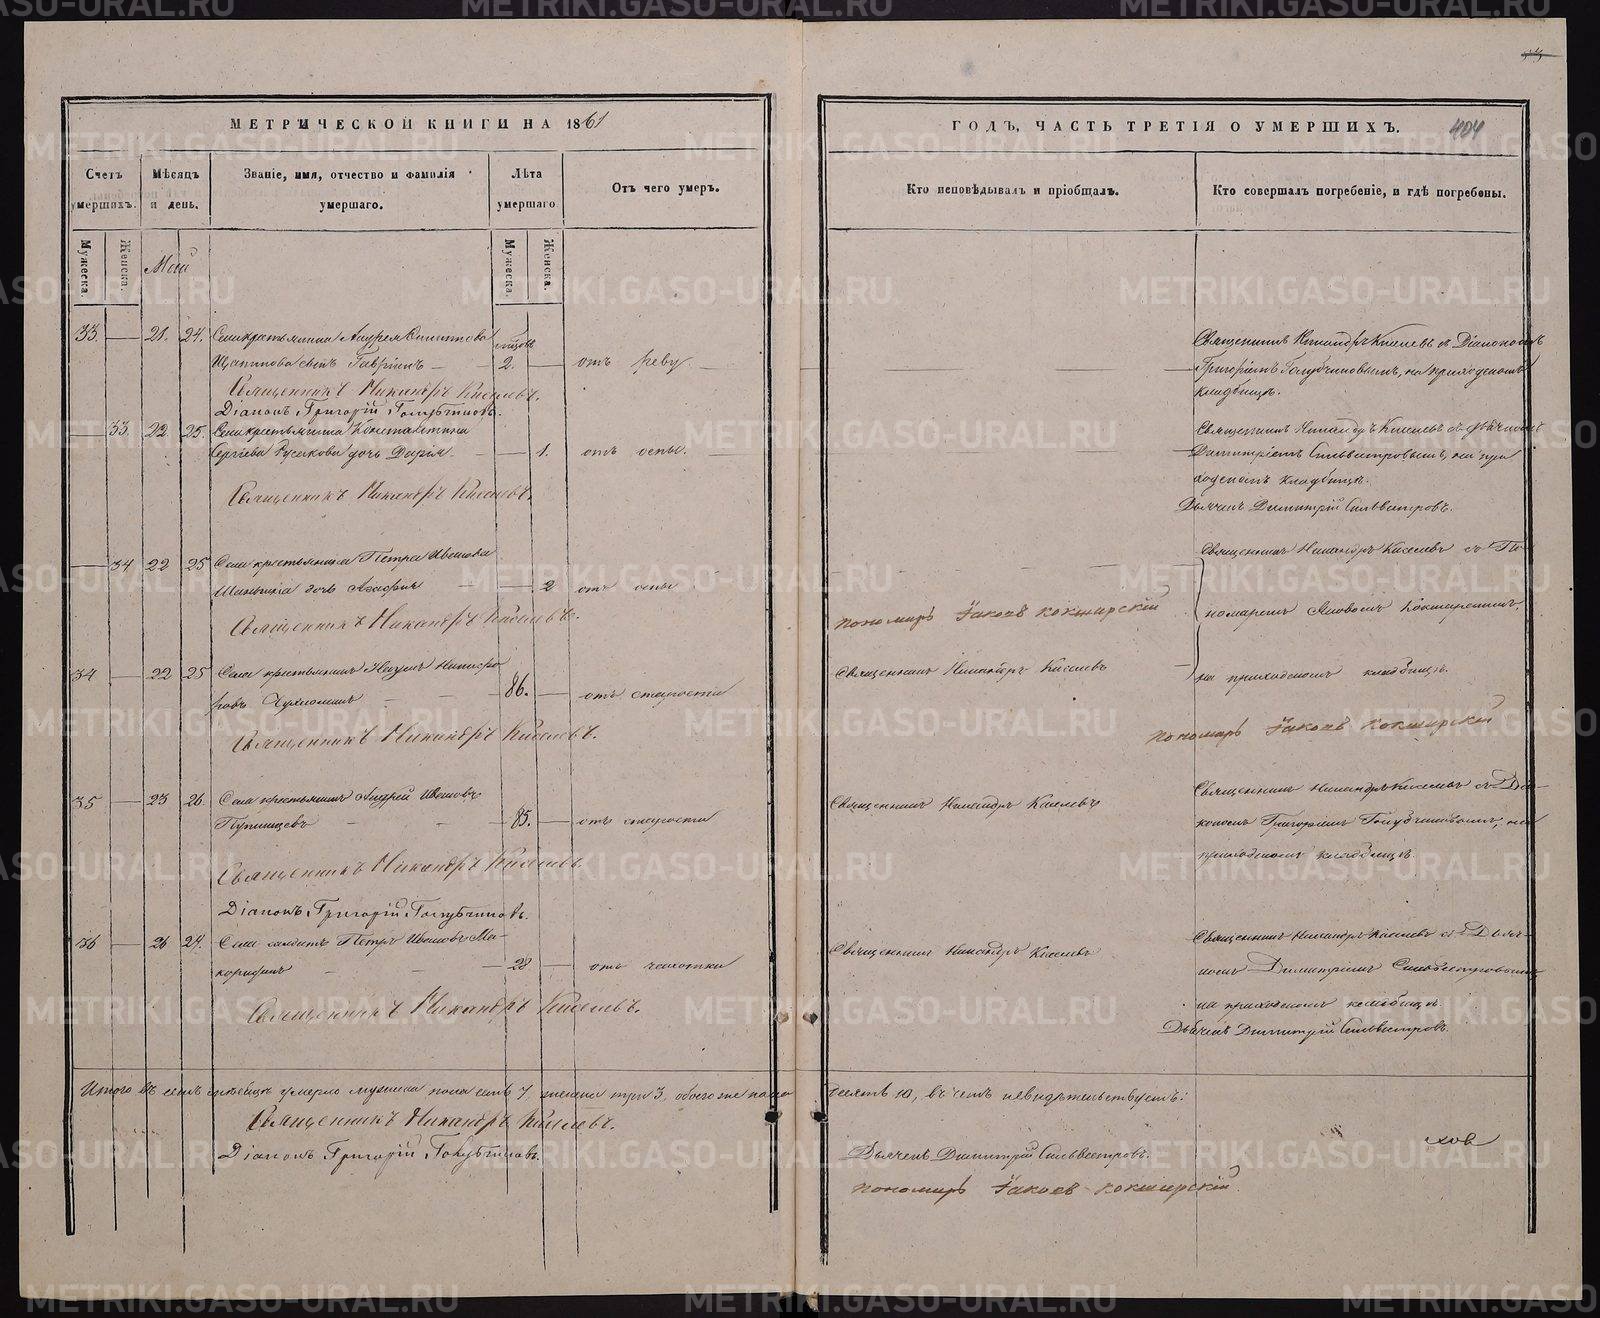 МЕТРИЧЕСКОЙ КНИГИ НА 1861
Счетъ умершихъ.
Мѣсяцъ и день.
Званіе, имя, отчество и фамилія умершаго.
Лѣта умершаго
Отъ чего умеръ.
Мужеска.
Женска.
Мужеска.
Женска.
Май
33. 21. 24. Села крестьянина Андрея
сынъ Гавріилъ 2. отъ реву.
Священникъ Никандръ Киселевъ.
Діаконъ Григорій Голубчиковъ.
33. 22. 25. Села крестьянина Константина
Сергіева Русакова дочь Дарья 1. отъ оспы.
Священникъ Никандръ Киселевъ.
34 22 25 Села крестьянина Петра Иванова
дочь Агафія 2 отъ оспы
Священникъ Никандръ Киселевъ.
34 22 25 Села крестьянинъ Наумъ Никифо
ровъ 86. отъ старости
Священникъ Никандръ Киселевъ.
35 23 26. Села крестьянинъ Андрей Ивановъ
85. отъ старости
Священникъ Никандръ Киселевъ.
Діаконъ Григорій Голубчиковъ.
36 26 24. Села солдатъ Петръ Ивановъ Ма-
28 отъ чахотки
Священникъ Никандръ Киселевъ.
Итого въ семъ мѣсяцѣ умерло мужеска пола семь 7, женска три 3, обоего же пола
Священникъ Никандръ Киселевъ.
Діаконъ Григорій Голубчиковъ.
ГОДЪ, ЧАСТЬ ТРЕТІЯ О УМЕРШИХЪ.
404
Кто исповѣдывалъ и пріобщалъ.
Кто совершалъ погребеніе, и гдѣ погребены.
Священникъ Никандръ Киселевъ съ Діакономъ
Григоріемъ Голубчиковымъ, на приходскомъ
кладбищѣ.
Священникъ Никандръ Киселевъ съ Дьячкомъ
Димитріемъ Сильвестровымъ, на при
ходскомъ кладбищѣ.
Дьячекъ Димитрій Сильвестровъ.
Священникъ Никандръ Киселевъ съ По
Пономарь Іаковъ Кокшарскій
номаремъ Яковомъ Кокшарскимъ,
Священникъ Никандръ Киселевъ
на приходскомъ кладбищѣ.
Пономарь Іаковъ Кокшарскій
Священникъ Никандръ Киселевъ съ Діа-
Священникъ Никандръ Киселевъ
кономъ Григоріемъ Голубчиковымъ, на
приходскомъ кладбищѣ.
Священникъ Никандръ Киселевъ съ Дьяч-
Священникъ Никандръ Киселевъ
комъ Димитріемъ Сильвестровымъ
на приходскомъ кладбищѣ.
Дьячекъ Димитрій Сильвестровъ.
десять 10, въ чемъ и свидѣтельствуемъ:
Дьячекъ Димитрій Сильвестровъ.
Пономарь Іаковъ Кокшарскій.
METRIKI.GASO-URAL.RU